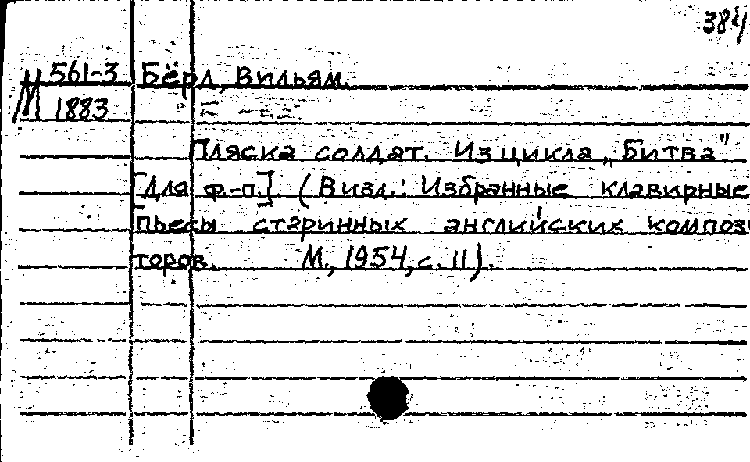 384
М 561-3 Бёрд, Вильям.
1883
Пляска солдат. Из цикла „Битва"
[Для ф.-п.] (В изд.: Избранные клавирные
пьесы старинных английских компози
торов. М., 1954, с. 11).